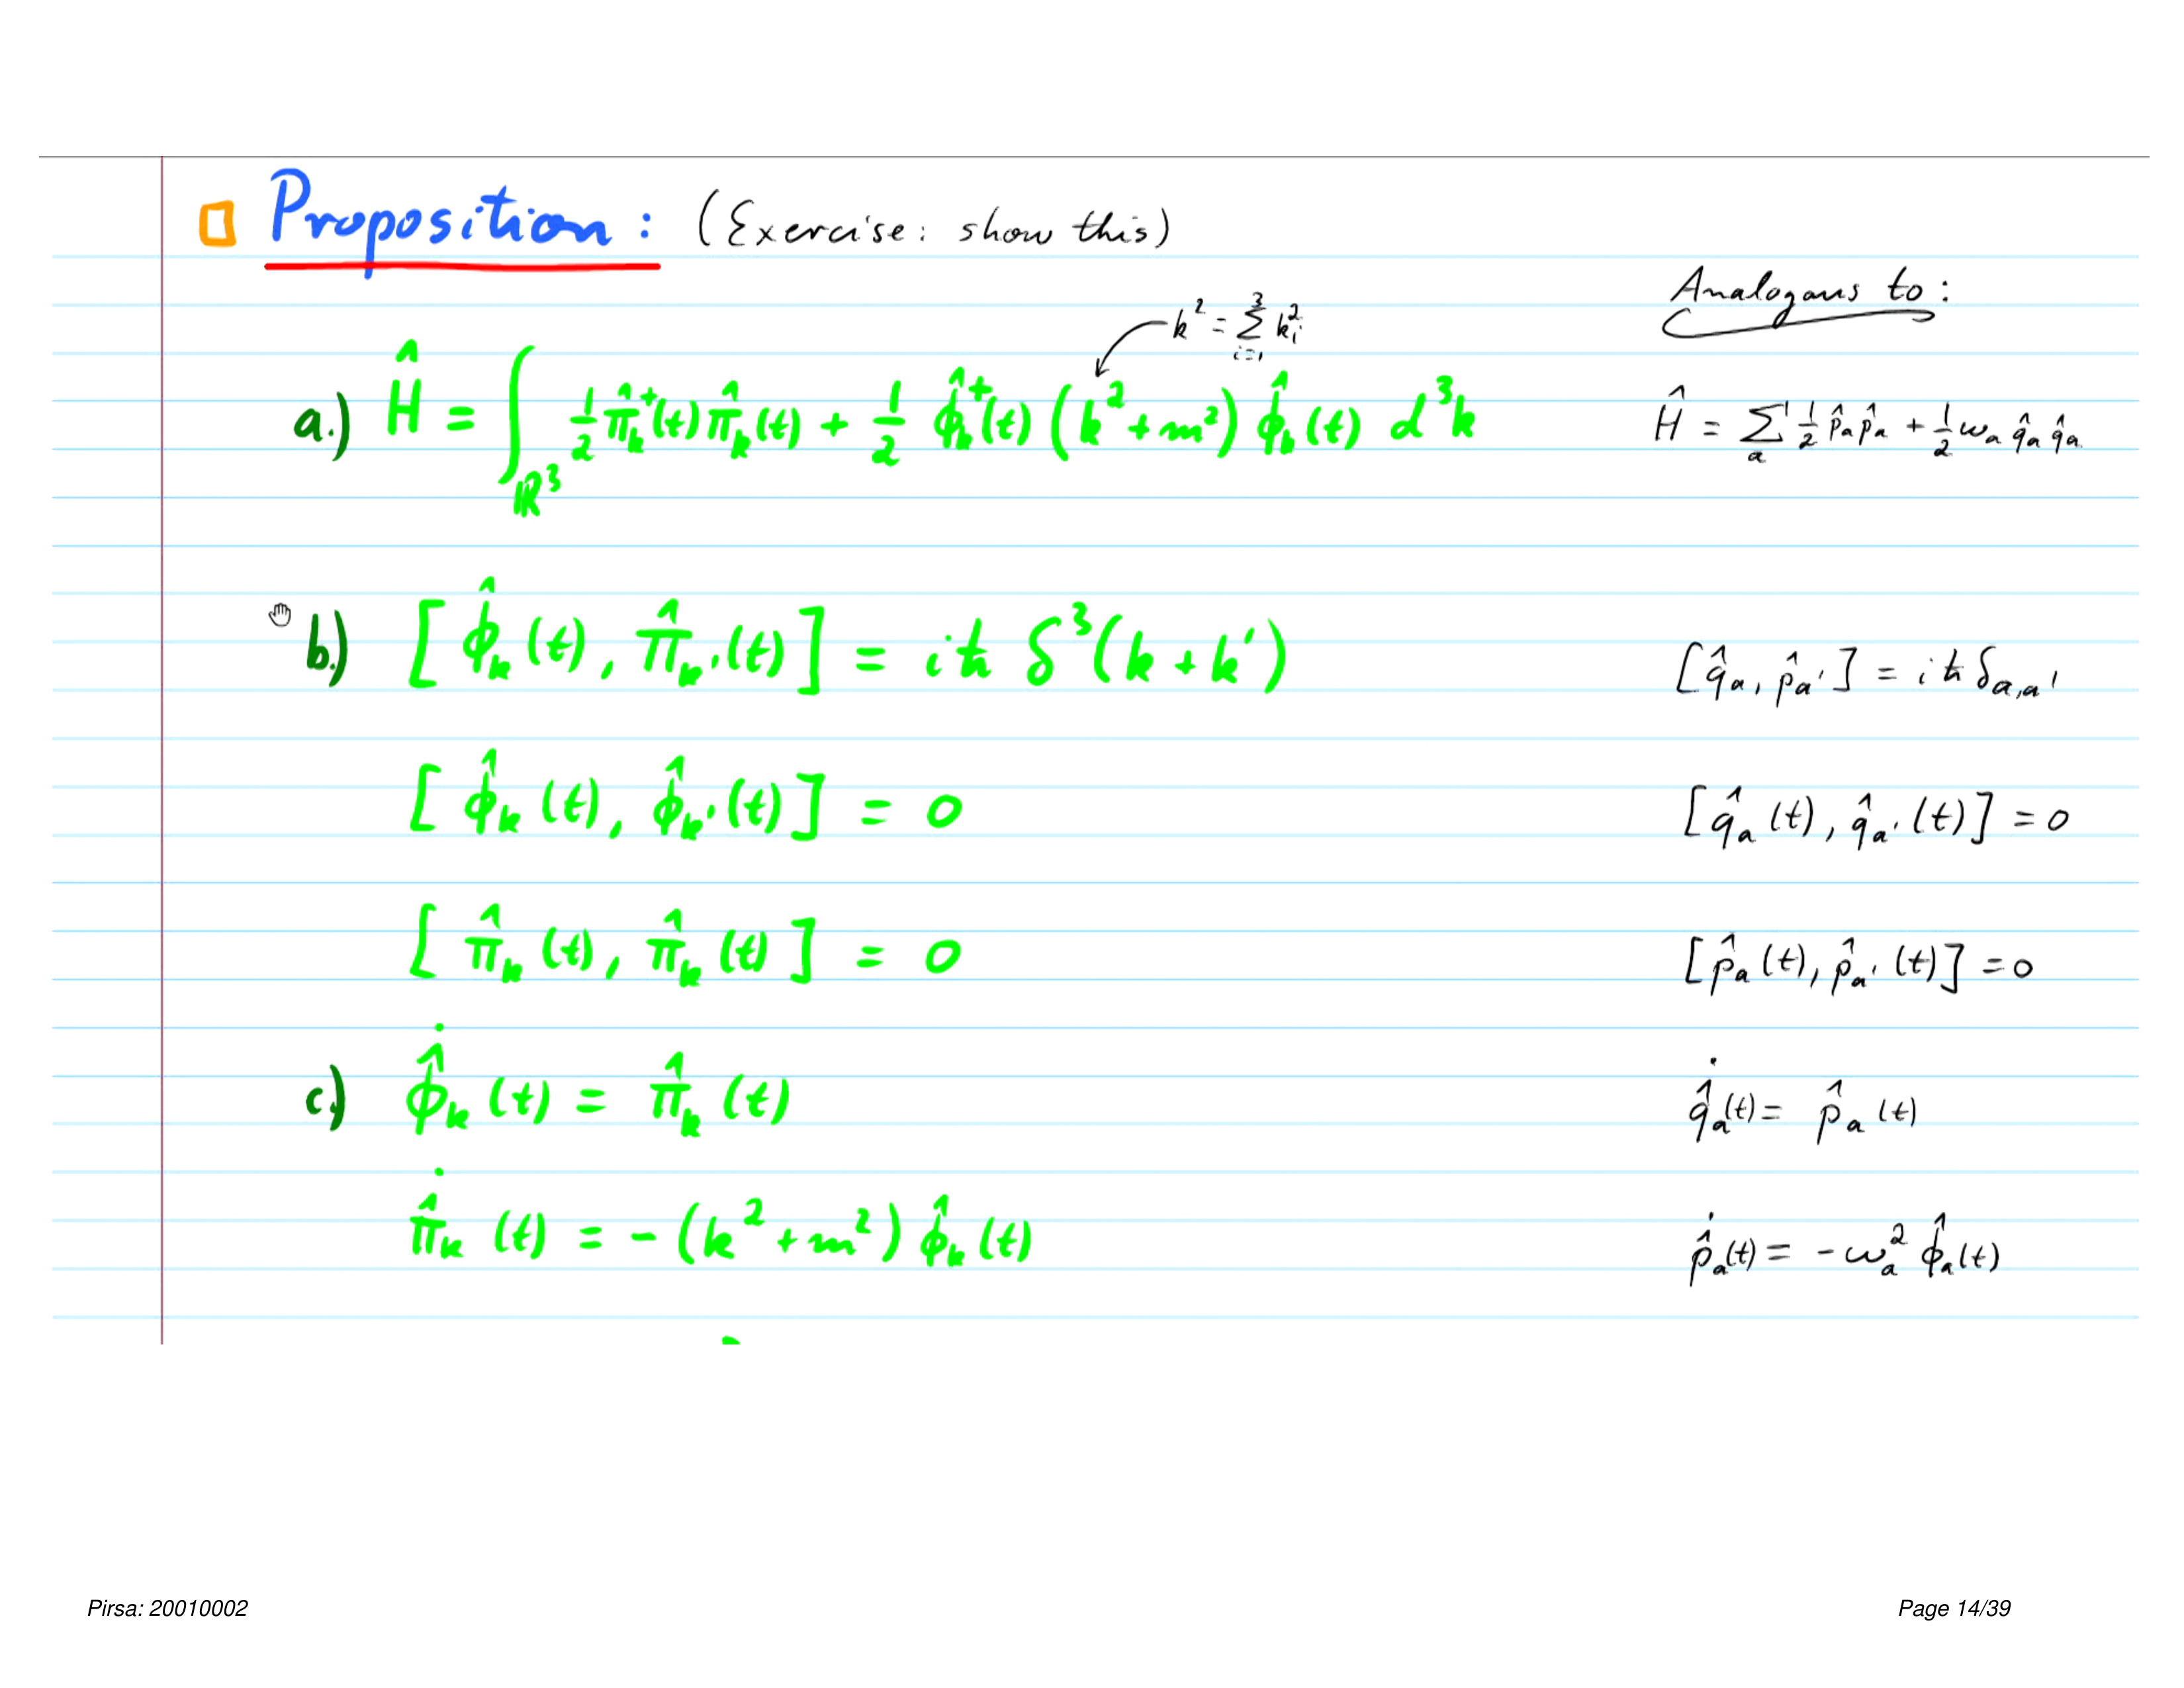 Proposition: (Exercise: show this)
Analogous to:
k² = Σ_{i=1}^{3} k_i²
a.) Ĥ = ∫_{ℝ³} ½ π̂_k†(t) π̂_k(t) + ½ φ̂_k†(t) (k² + m²) φ̂_k(t) d³k
Ĥ = Σ_a ½ p̂_a p̂_a + ½ ω_a q̂_a q̂_a
b.) [φ̂_k(t), π̂_k'(t)] = iħ δ³(k + k')
[q̂_a, p̂_a'] = iħ δ_{a,a'}
[φ̂_k(t), φ̂_k'(t)] = 0
[q̂_a(t), q̂_a'(t)] = 0
[π̂_k(t), π̂_k(t)] = 0
[p̂_a(t), p̂_a'(t)] = 0
c.) φ̂̇_k(t) = π̂_k(t)
q̂̇_a(t) = p̂_a(t)
π̂̇_k(t) = -(k² + m²) φ̂_k(t)
p̂̇_a(t) = -ω_a² φ̂_a(t)
Pirsa: 20010002
Page 14/39